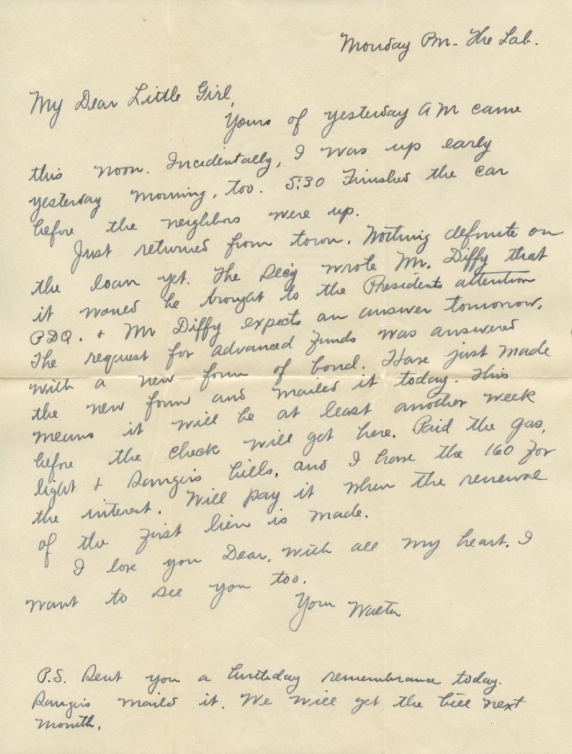 Monday Pm - The Lab.
My Dear Little Girl,
Yours of yesterday A M came
this noon. Incidentally, I was up early
yesterday morning, too. 5:30 Finished the car
before the neighbors were up.
Just returned from town. Nothing definite on
the loan yet. The Sec'y wrote Mr. Diffy that
it would be brought to the Presidents attention
P.D.Q. + Mr Diffy expects an answer tomorrow.
The request for advanced funds was answered
with a new form of bond. Have just made
the new form and mailed it today. This
means it will be at least another week
before the check will get here. Paid the gas,
light + bills, and I have the 160 for
the interest. Will pay it when the renewal
of the first lien is made.
I love you Dear, with all my heart. I
want to see you too.
Your Walter
P.S. Sent you a birthday remembrance today.
mailed it. We will get the bill next
month.